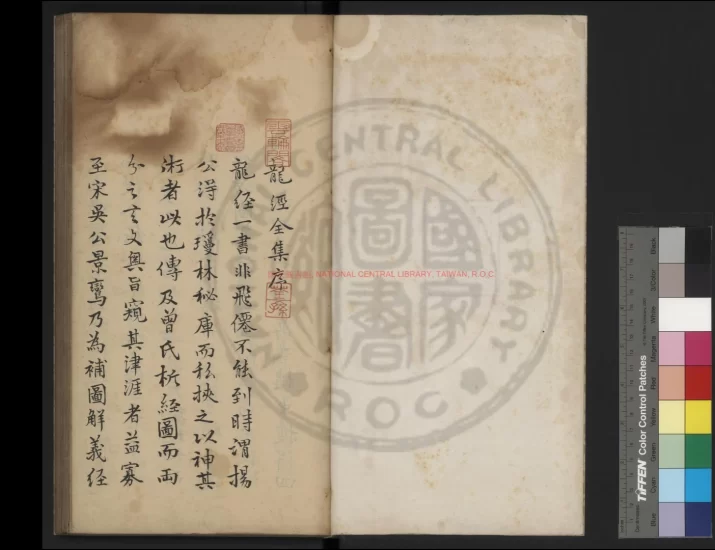 龍經全集序
龍經一書非飛僊不能到時謂揚
公淂扵瓊林秘庫而私挾之以神其
術者以此也傳及曾氏析經圖而両
分之玄文奧旨窺其津涯者益寡
至宋吳公景鸞乃為補圖解義經
NATIONAL CENTRAL LIBRARY, TAIWAN, R.O.C.
NATIONAL CENTRAL LIBRARY
R.O.C.
國圖
TIFFEN Color Control Patches
Blue
Cyan
Green
Yellow
Red
Magenta
White
3/Color
Black